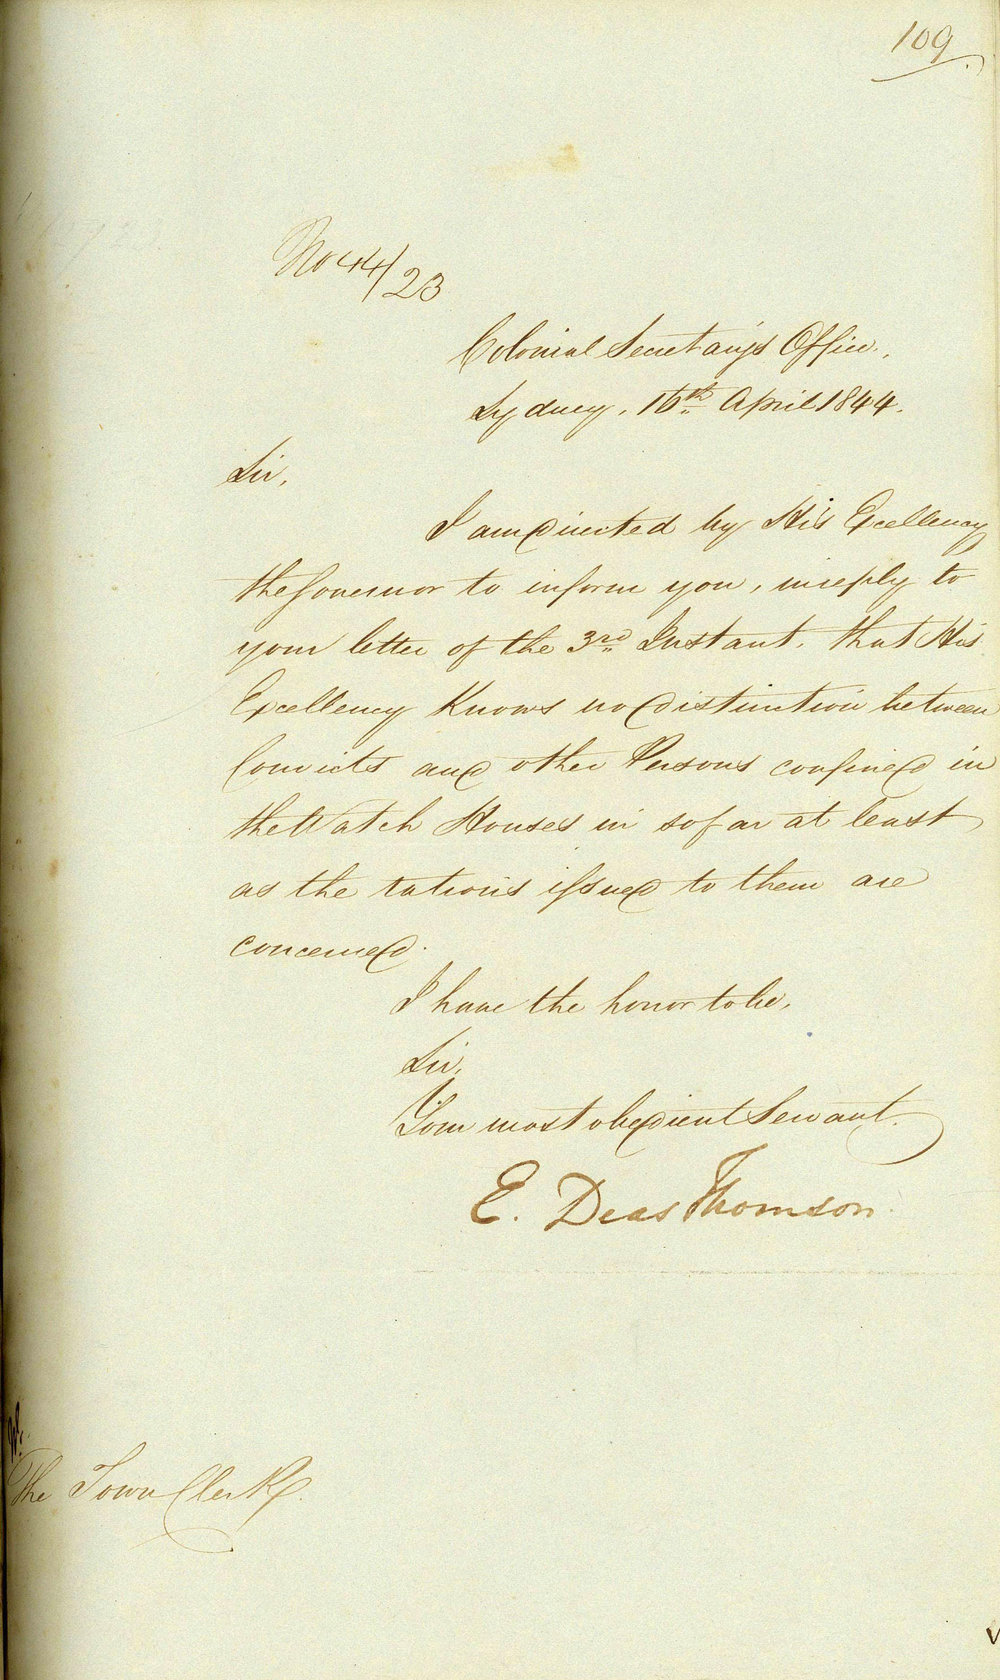 109.
No 44/23
Colonial Secretary's Office,
Sydney, 16th April 1844.
Sir,
I am directed by His Excellency
the Governor to inform you, in reply to
your letter of the 3rd Instant, that His
Excellency Knows no distinction between
Convicts and other Persons confined in
the Watch Houses in so far at least
as the rations issued to them are
concerned.
I have the honor to be,
Sir,
Your most obedient Servant.
E. Deas Thomson.
The Town Clerk.